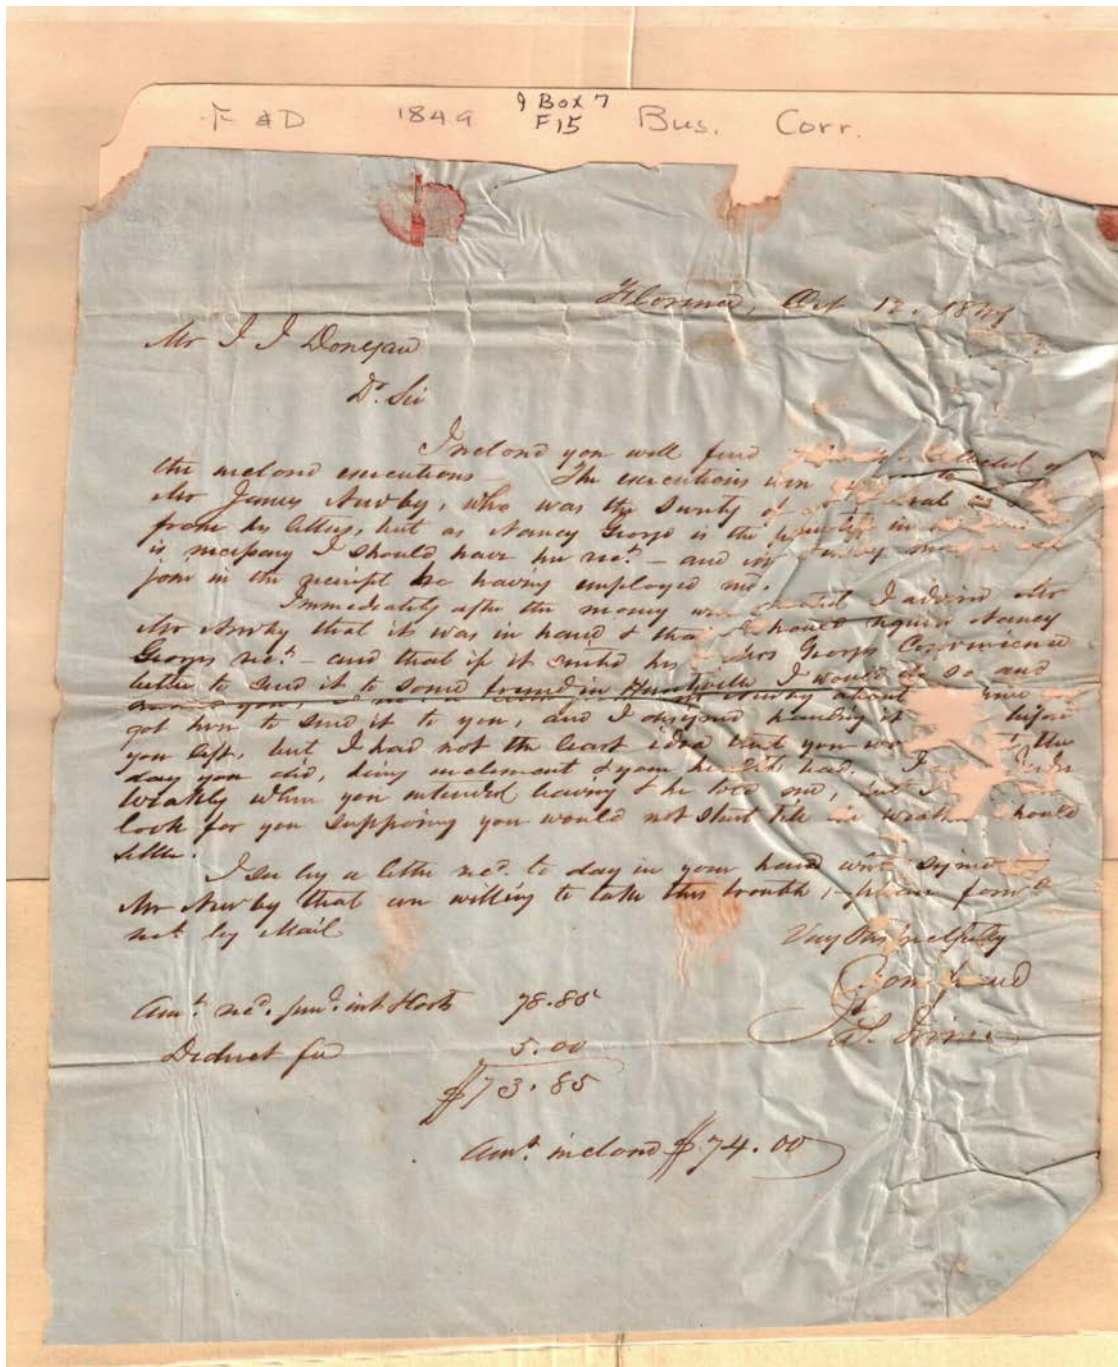 F & D 1849 9 Box 7 Bus. Corr.
F15
Florence, Oct 12. 18
Mr J J Donegan
Dr. Sir
Inclosed you will find collected of
the inclosed executions — The executions were
Mr James Newby, who was the surety of
from his letters, but as Nancy George is the plaintiff in
is necessary I should have her rect. — and
join in the receipt he having employed me.
Immediately after the money was I advised Mr
Mr Newby that it was in hand & that should require Nancy
Georges rect. — and that if it suited his Mrs Georges convenience
better to send it to some friend in Huntsville I would do so and
you, Newby about
got him to send it to you, and I designed handing it before
you left, but I had not the least idea that you the
day you did, being inclement & your health bad. I
Weakly when you intended leaving & he told me, but I
look for you supposing you would not start till the weather should
settle.
I see by a letter recd. to day in your hand signed
Mr Newby that are willing to take this trouble, — please forwd
rect. by Mail.
Very Respectfully
Your friend
J. Irvine
Amt. recd. int & costs 78.85
Deduct fee 5.00
$73.85
Amt. inclosed $74.00